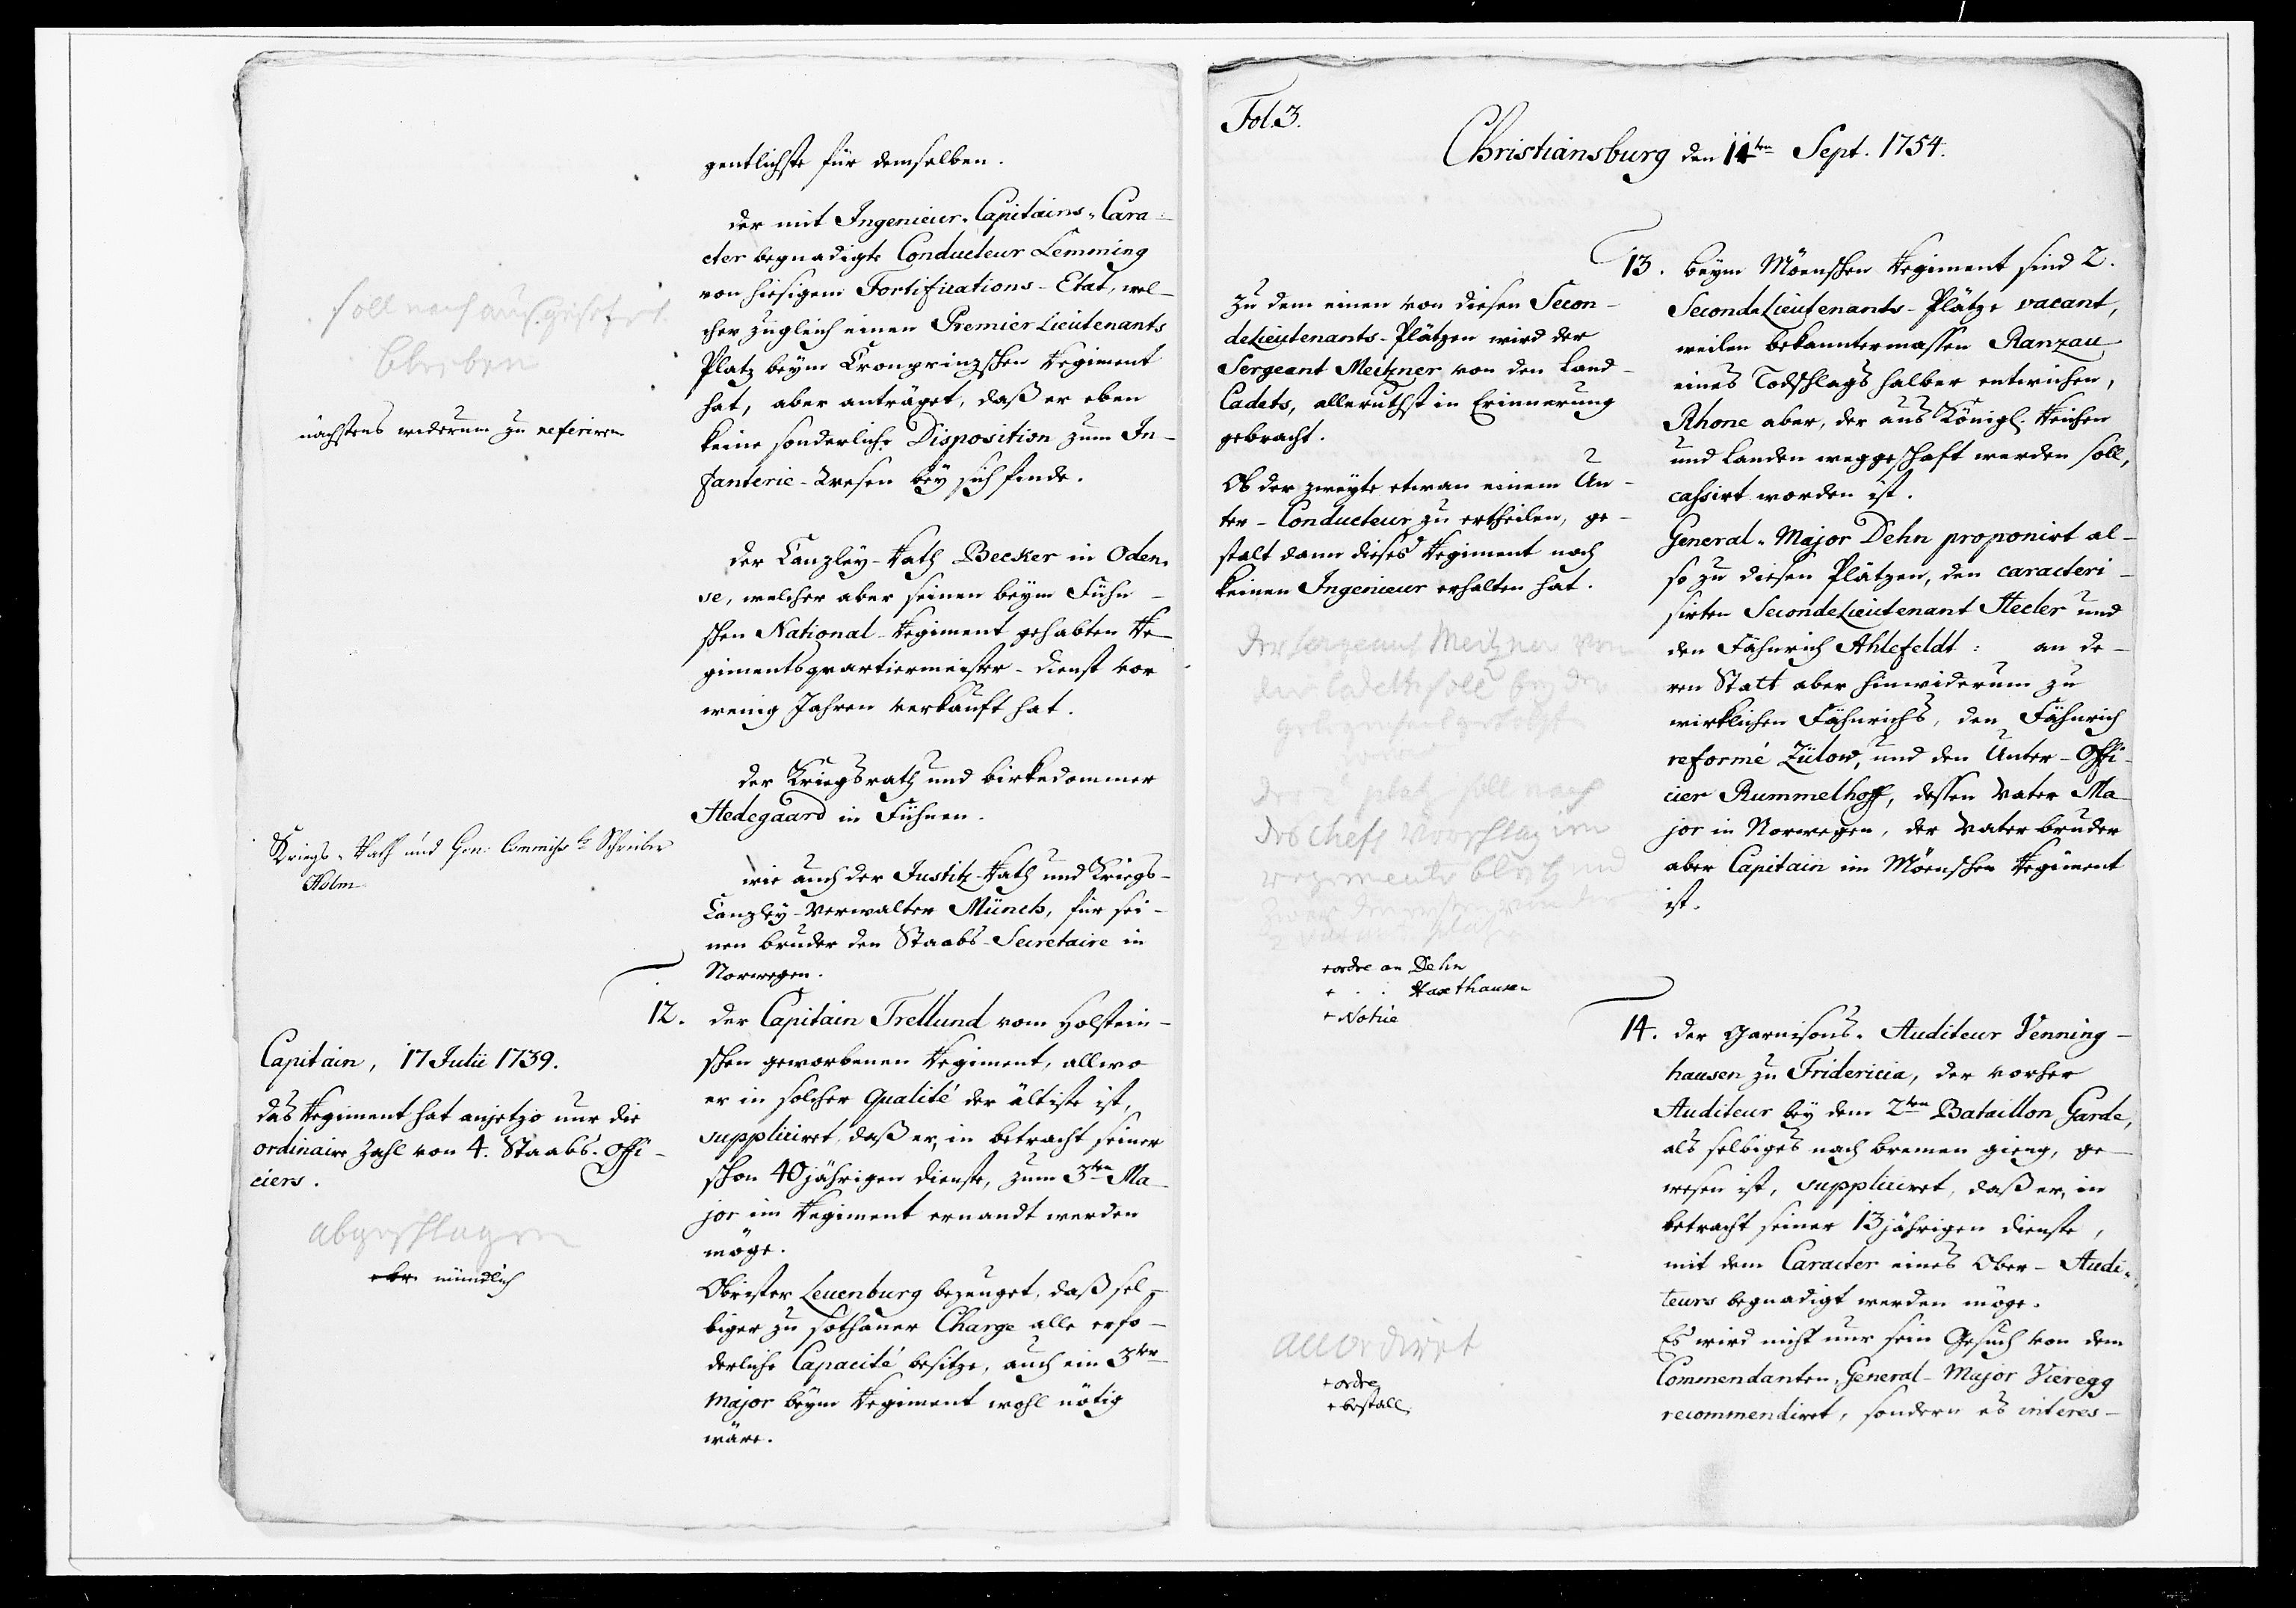 gentlichste für demselben.
der mit Ingenieur-Capitains-Cara-
cter begnadigte Conducteur Lemming
von hiesigem Fortifications-Etat, wel-
cher zugleich einen Premier Lieutenants
Platz beym Cronprinzschen Regiment
hat, aber anträget, daß er eben
keine sonderliche Disposition zum In-
fanterie-Wesen bey sich finde.
der Canzley-Rath Becker in Oden-
se, welcher aber seinen beym Fühn-
schen National-Regiment gehabten Re-
gimentsquartiermeister-Dienst vor
wenig Jahren verkauft hat.
der Kriegsrath und birkedommer
Hedegaard in Fühnen.
wie auch der Justitz-Rath und Kriegs-
Canzley-Verwalter Münch, für sei-
nen bruder den Staabs-Secretaire in
Norwegen.
soll noch
bleiben
nächstens wiederum zu referiren
Kriegs-Rath und Gen: Commiss. Schreiber
Holm
12. der Capitain Trellund vom Holstein-
schen geworbenen Regiment, allwo
er in solcher qualité der älteste ist,
suppliciret, daß er, in betracht seiner
schon 40jährigen Dienste, zum 3ten Ma-
jor im Regiment ernandt werden
möge.
Obrister Leuenburg bezeuget, daß sel-
biger zu sothaner Charge alle erfo-
derliche Capacité besitze, auch ein 3ter
Major beym Regiment wohl nötig
wäre.
Capitain, 17 Julii 1739.
das Regiment hat anjetzo nur die
ordinaire Zahl von 4. Staabs-Offi-
ciers.
abgeschlagen
mündlich
Fol. 3.
Christiansburg den 11ten Sept. 1754.
13. beym Möenschen Regiment sind 2.
SecondeLieutenants-Plätze vacant,
weilen bekanntermassen Ranzau
eines Todschlags halber entwichen,
Rhone aber, der aus Königl. Reichen
und Landen weggeschaft werden soll,
cassirt worden ist.
General-Major Dehn proponirt al-
so zu diesen Plätzen, den caracteri-
sirten SecondeLieutenant Steeler und
den Fähnrich Ahlefeldt: an de-
ren Statt aber hinwiderum zu
wirklichen Fähnrichs, den Fähnrich
reformé Zülow, und den Unter-Offi-
cier Rummelhoff, dessen Vater Ma-
jor in Norwegen, der Vater bruder
aber Capitain im Möenschen Regiment
ist.
zu dem einen von diesen Secon-
deLieutenants-Plätzen wird der
Sergeant Meitzner von den Land-
Cadets, allerunthst in Erinnerung
gebracht.
Ob der zweyte etwan einem Un-
ter-Conducteur zu ertheilen, ge-
stalt dann dieses Regiment noch
keinen Ingenieur erhalten hat.
der sergeant Meitzner von
den Cadetts soll bey der
gelegenheit
der 2 platz soll nach
des Chefs vorschlag im
regimente bleiben und
+ ordre an Dehn
+ . . Haxthausen
+ Notice
14. der Garnisons-Auditeur Venning-
hausen zu Fridericia, der vorher
Auditeur bey dem 2ten Bataillon Garde,
als selbiges nach bremen gieng, ge-
wesen ist, suppliciret, daß er, in
betracht seiner 13jährigen Dienste,
mit dem Caracter eines Ober-Audi-
teurs begnadigt werden möge.
Es wird nicht nur sein Gesuch von dem
Commendanten, General-Major Vieregg
recommendiret, sondern es interes-
accordiret
+ ordre
+ bestall.